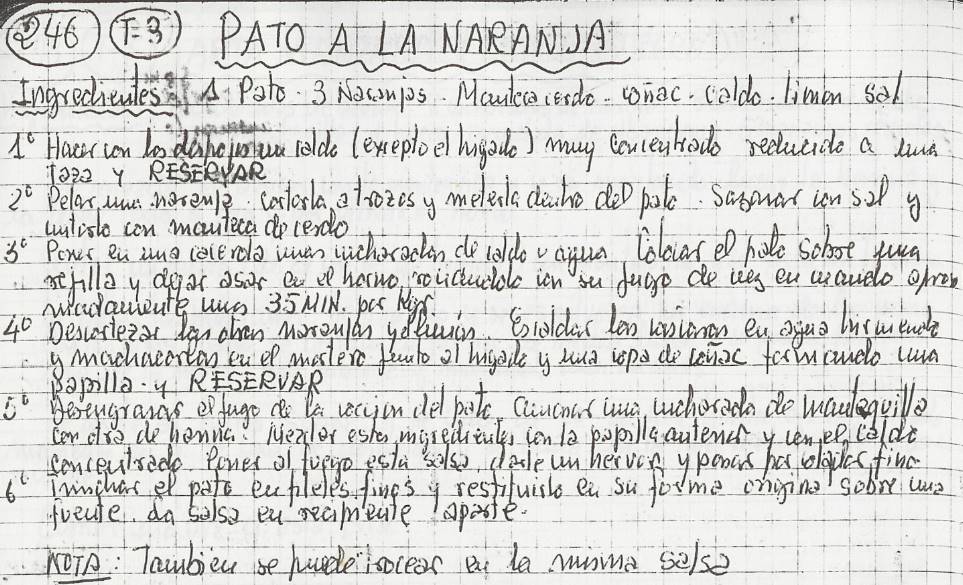 246 T-3 PATO A LA NARANJA
Ingredientes 1 Pato - 3 Naranjas - Manteca cerdo - coñac - caldo - limón sal
1º Hacer con los despojos un caldo (excepto el higado) muy concentrado reducido a una
Taza y RESERVAR
2º Pelar una naranja. Cortarla a trozos y meterla dentro del pato. Sazonar con sal y
untarlo con manteca de cerdo
3º Poner en una cacerola unas cucharadas de caldo o agua. Colocar el pato sobre una
rejilla y dejar asar en el horno rociandolo con su jugo de vez en cuando aprox
imadamente unos 35 MIN. por Kgr.
4º Descortezar las otras naranjas y el limón. Escaldar las cascaras en agua hirviendo
y machacarlas en el mortero junto al higado y una copa de coñac formando una
papilla - y RESERVAR
5º Desengrasar el jugo de la cocción del pato. Amasar una cucharada de mantequilla
con otra de harina. Mezclar estos ingredientes con la papilla anterior y con el caldo
concentrado. Poner al fuego esta salsa, darle un hervor y pasar por colador fino
6º Trinchar el pato en filetes finos y restituirlo en su forma origina sobre una
fuente. La salsa en recipiente aparte.
NOTA: Tambien se puede cocear en la misma salsa